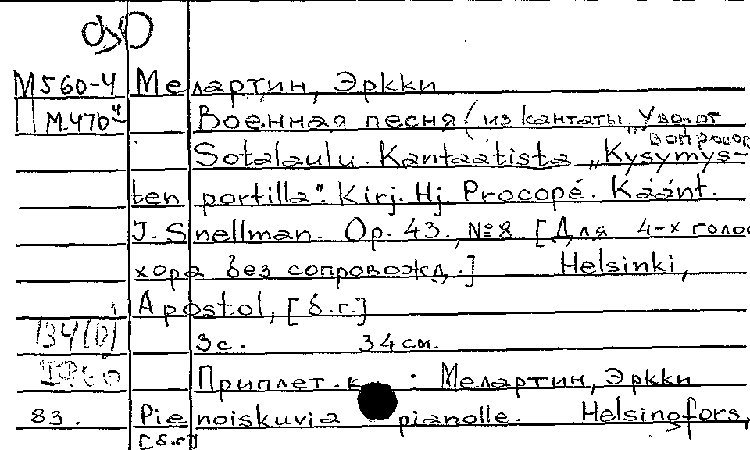 М560-4 Мелартин, Эркки
М.470⁴ Военная песня (из кантаты „У ворот
вопросов
Sotalaulu. Kantaatista „Kysymys-
ten portilla". Kirj. Hj. Procopé. Käänt.
J. Snellman. Op. 43, №2 [Для 4-х голос
хора без сопровожд.] Helsinki,
Apostol, [б.г.]
134(0)
3с. 34см.
Приплет. к : Мелартин, Эркки
83. Pienoiskuvia pianolle. Helsingfors,
[б.г.]